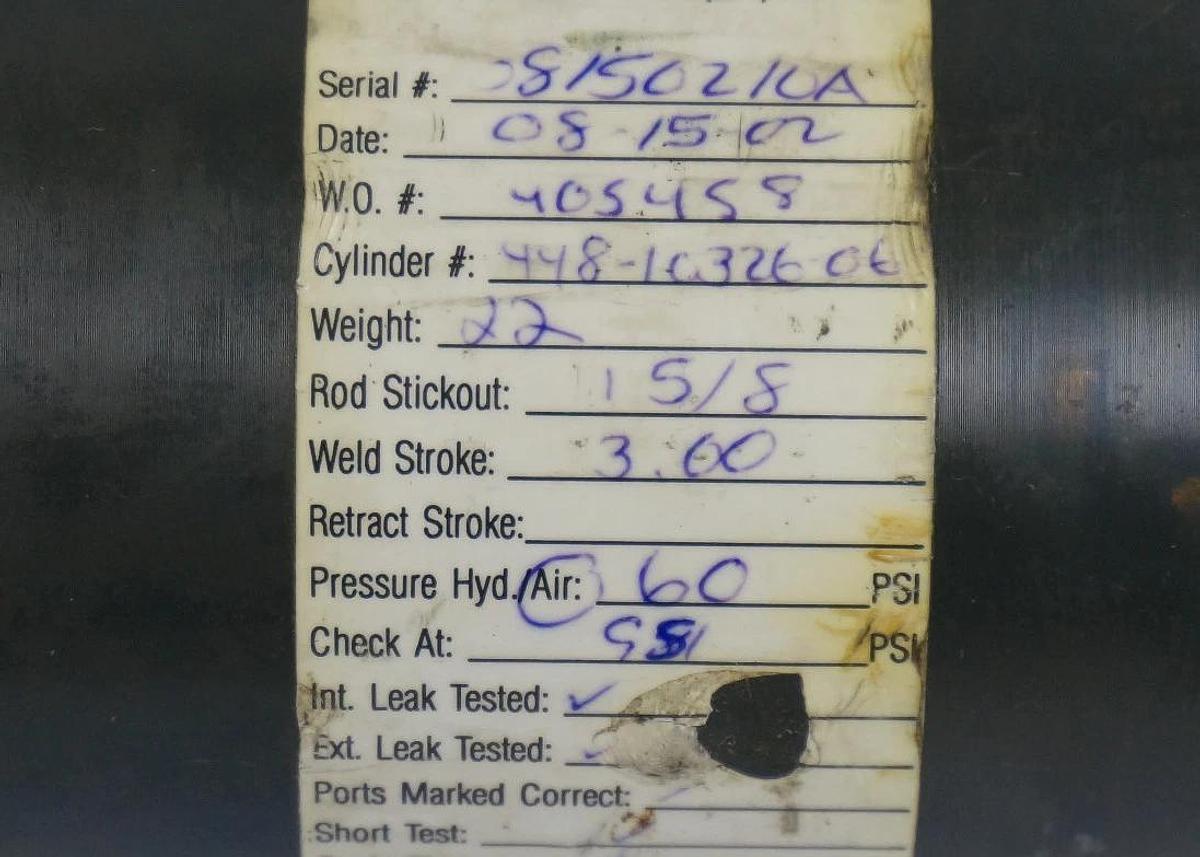 Serial #: 08150210A
Date: 08-15-02
W.O. #: 405458
Cylinder #: 448-10326-06
Weight: 22
Rod Stickout: 1 5/8
Weld Stroke: 3.60
Retract Stroke:
Pressure Hyd./Air: 60 PSI
Check At: PSI
Int. Leak Tested: ✓
Ext. Leak Tested: ✓
Ports Marked Correct:
Short Test: ✓